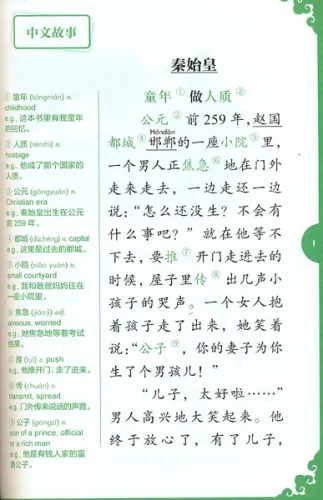 中文故事
秦始皇
童年① 做人质②
公元③前259年，赵国
Hándān
都城④邯郸的一座小院⑤里，
一个男人正焦急⑥地在门外
走来走去，一边走还一边
说：“怎么还没生？不会有
什么事吧？”就在他等不
下去，要推⑦开门走进去的
时候，屋子里传⑧出几声小
孩子的哭声。一个女人抱
着孩子走了出来，她笑着
说：“公子⑨，你的妻子为你
生了个男孩儿！”
“儿子，太好啦……”
男人高兴地大笑起来。他
终于放心了，有了儿子，
①童年 (tóngnián) n.
childhood
e.g., 这本书里有我童年
的回忆。
②人质 (rénzhì) n.
hostage
e.g., 他成了那个国家的
人质。
③公元 (gōngyuán) n.
Christian era
e.g., 秦始皇出生在公元
前259年。
④都城 (dūchéng) n. capital
e.g., 这里是过去的都城。
⑤小院 (xiǎo yuàn) n.
small courtyard
e.g., 我和爸爸妈妈住在
一座小院里。
⑥焦急 (jiāojí) adj.
anxious, worried
e.g., 她焦急地等着考试
结果。
⑦推 (tuī) v. push
e.g., 他推开门，走了进来。
⑧传 (chuán) v.
transmit, spread
e.g., 门外传来说话的声音。
⑨公子 (gōngzǐ) n.
son of a prince, official
or a rich man
e.g., 他是有钱人家的富
贵公子。
1